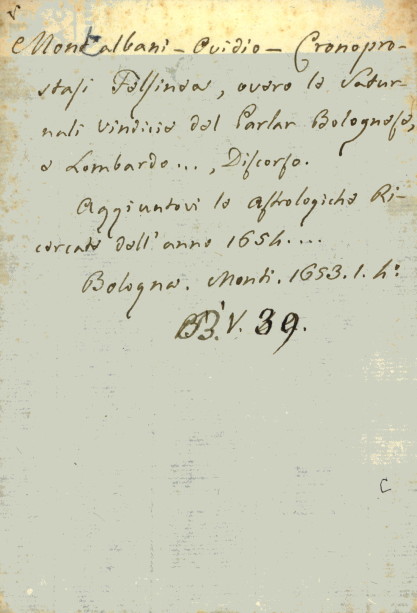 Montalbani - Ovidio - Cronopro-
stasi Felsinea, overo le Satur-
nali vindicie del Parlar Bolognese,
e Lombardo..., Discorso.
Aggiuntovi le Astrologiche Ri-
cercate dell'anno 1654....
Bologna. Monti. 1653. 1. 4.°
B. V. 39.
C